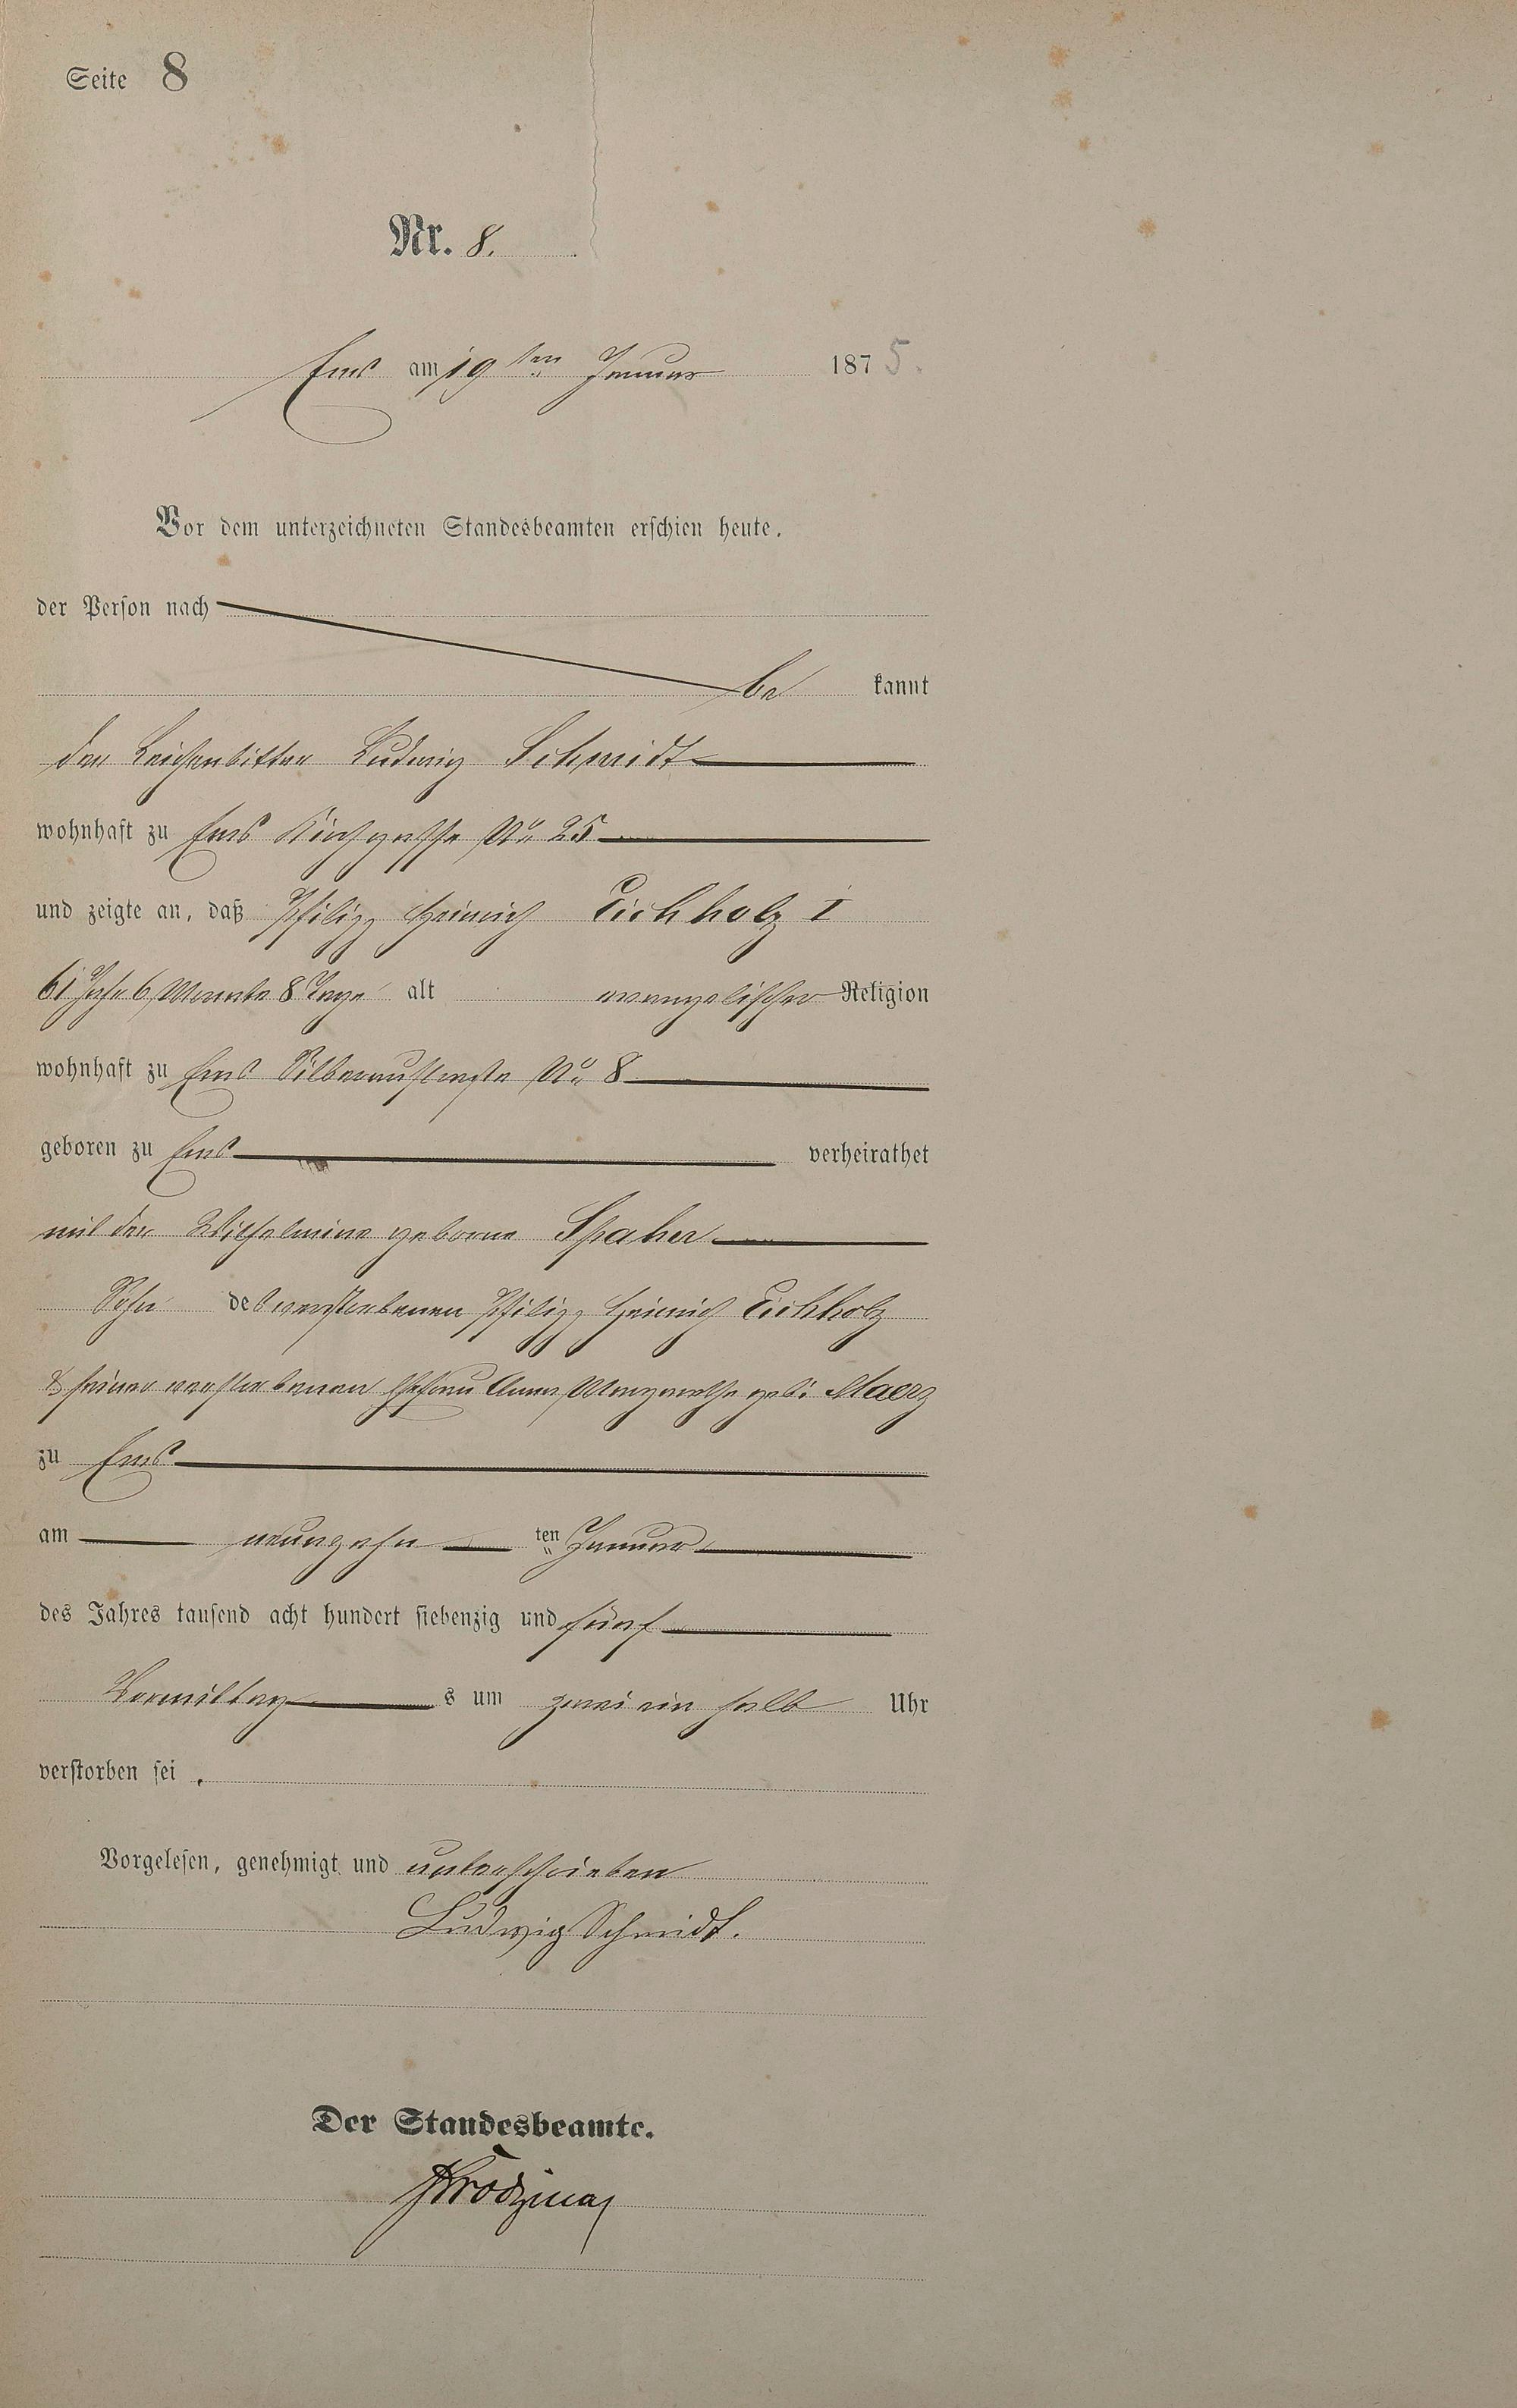 Seite 8
Nr. 8.
Ems am 19ten Januar 1875.
Vor dem unterzeichneten Standesbeamten erschien heute,
der Person nach
be kannt
der Leichenbitter Ludwig Schmidt
wohnhaft zu Ems Kirchgasse No 25
und zeigte an, daß Philipp Heinrich Eichholz I
61 Jahr 6 Monate 8 Tage alt evangelischer Religion
wohnhaft zu Ems Silberaustraße No 8
geboren zu Ems verheirathet
mit der Wilhelmine geborne Spaher
Sohn des verstorbenen Philipp Heinrich Eichholz
& seiner verstorbenen Ehefrau Anna Margarethe geb: Maerz
zu Ems
am neunzehn ten Januar
des Jahres tausend acht hundert siebenzig und fünf
Vormittag s um zwei ein halb Uhr
verstorben sei.
Vorgelesen, genehmigt und unterschrieben
Ludwig Schmidt.
Der Standesbeamte.